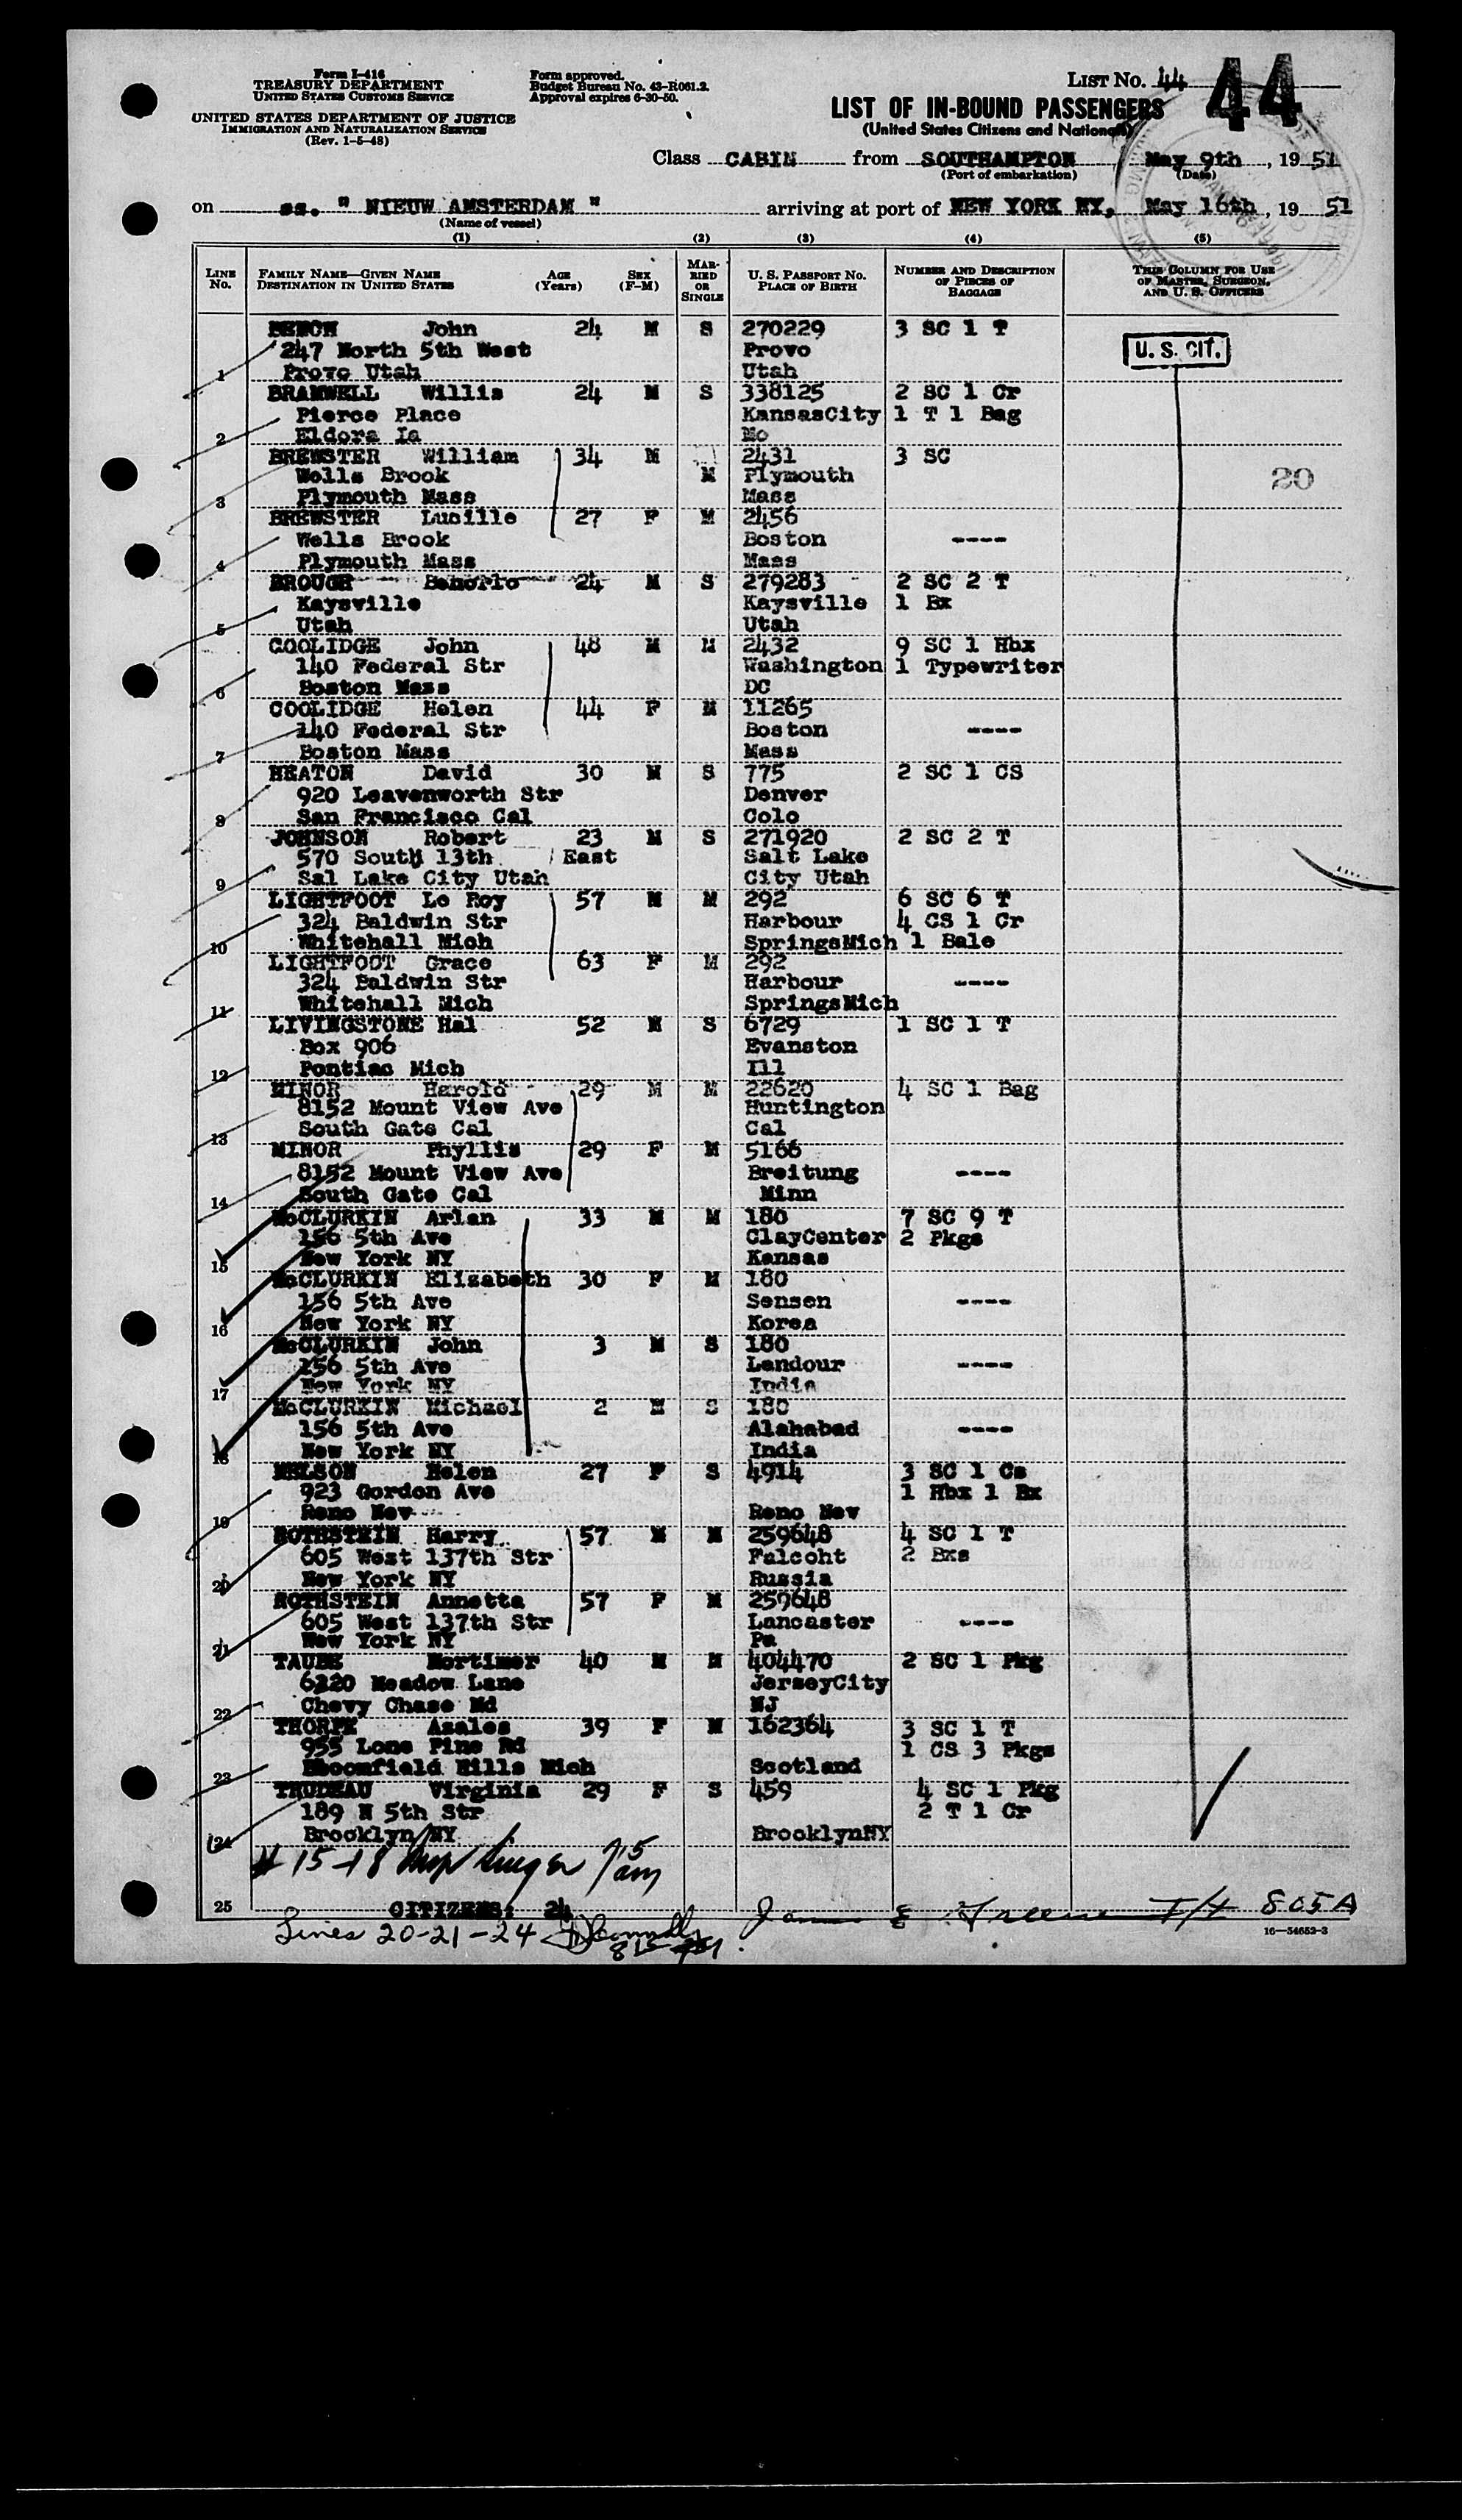 Form I-416
TREASURY DEPARTMENT
UNITED STATES CUSTOMS SERVICE
UNITED STATES DEPARTMENT OF JUSTICE
IMMIGRATION AND NATURALIZATION SERVICE
(Rev. 1-5-48)
Form approved.
Budget Bureau No. 43-R061.2.
Approval expires 6-30-50.
LIST NO. 44
44
LIST OF IN-BOUND PASSENGERS
(United States Citizens and Nationals)
Class CABIN from SOUTHAMPTON, May 9th, 1951
(Port of embarkation) (Date)
on ss. " NIEUW AMSTERDAM " arriving at port of NEW YORK NY, May 16th, 19 51
(Name of vessel)
(1) (2) (3) (4) (5)
LINE No. FAMILY NAME—GIVEN NAME DESTINATION IN UNITED STATES AGE (Years) SEX (F-M) MARRIED OR SINGLE U. S. PASSPORT No. PLACE OF BIRTH NUMBER AND DESCRIPTION OF PIECES OF BAGGAGE THIS COLUMN FOR USE OF MASTER, SURGEON, AND U. S. OFFICERS
John 24 M S 270229 3 SC 1 T
U. S. CIT.
247 North 5th West Provo
1 Provo Utah Utah
BRAMWELL Willis 24 M S 338125 2 SC 1 Cr
Pierce Place KansasCity 1 T 1 Bag
2 Eldora Ia Mo
BREWSTER William 34 M 2431 3 SC
Wells Brook M Plymouth
20
3 Plymouth Mass Mass
BREWSTER Lucille 27 F M 2456
Wells Brook Boston ----
4 Plymouth Mass Mass
BROUGH 24 M S 279283 2 SC 2 T
Kaysville Kaysville 1 Bx
5 Utah Utah
COOLIDGE John 48 M M 2432 9 SC 1 Hbx
140 Federal Str Washington 1 Typewriter
6 Boston Mass DC
COOLIDGE Helen 44 F M 11265
140 Federal Str Boston ----
7 Boston Mass Mass
HEATON David 30 M S 775 2 SC 1 CS
920 Leavenworth Str Denver
8 San Francisco Cal Colo
JOHNSON Robert 23 M S 271920 2 SC 2 T
570 South 13th East Salt Lake
9 Sal Lake City Utah City Utah
LIGHTFOOT Le Roy 57 M M 292 6 SC 6 T
324 Baldwin Str Harbour 4 CS 1 Cr
10 Whitehall Mich SpringsMich 1 Bale
LIGHTFOOT Grace 63 F M 292
324 Baldwin Str Harbour ----
11 Whitehall Mich SpringsMich
LIVINGSTONE Hal 52 M S 6729 1 SC 1 T
Box 906 Evanston
12 Pontiac Mich Ill
MINOR Harold 29 M M 22620 4 SC 1 Bag
8152 Mount View Ave Huntington
13 South Gate Cal Cal
MINOR Phyllis 29 F M 5166
8152 Mount View Ave Breitung ----
14 South Gate Cal Minn
McCLURKIN Arlan 33 M M 180 7 SC 9 T
156 5th Ave ClayCenter 2 Pkgs
15 New York NY Kansas
McCLURKIN Elizabeth 30 F M 180
156 5th Ave Sensen ----
16 New York NY Korea
McCLURKIN John 3 M S 180
156 5th Ave Landour ----
17 New York NY India
McCLURKIN Michael 2 M S 180
156 5th Ave Alahabad ----
18 New York NY India
NELSON Helen 27 F S 4914 3 SC 1 Cs
923 Gordon Ave 1 Hbx 1 Bx
19 Reno Nev Reno Nev
ROTHSTEIN Harry 57 M M 259648 4 SC 1 T
605 West 137th Str Falcoht 2 Bxs
20 New York NY Russia
ROTHSTEIN Annetta 57 F M 259648
605 West 137th Str Lancaster ----
21 New York NY Pa
TAUBE Mortimer 40 M M 404470 2 SC 1 Pkg
6320 Meadow Lane JerseyCity
22 Chevy Chase Md NJ
THORPE Azalea 39 F M 162364 3 SC 1 T
955 Lone Pine Rd 1 CS 3 Pkgs
23 Bloomfield Hills Mich Scotland
TRUDEAU Virginia 29 F S 459 4 SC 1 Pkg
189 N 5th Str 2 T 1 Cr
24 Brooklyn NY BrooklynNY
# 15-18
25 CITIZENS: 24
805A
Lines 20-21-24
16—54652-3